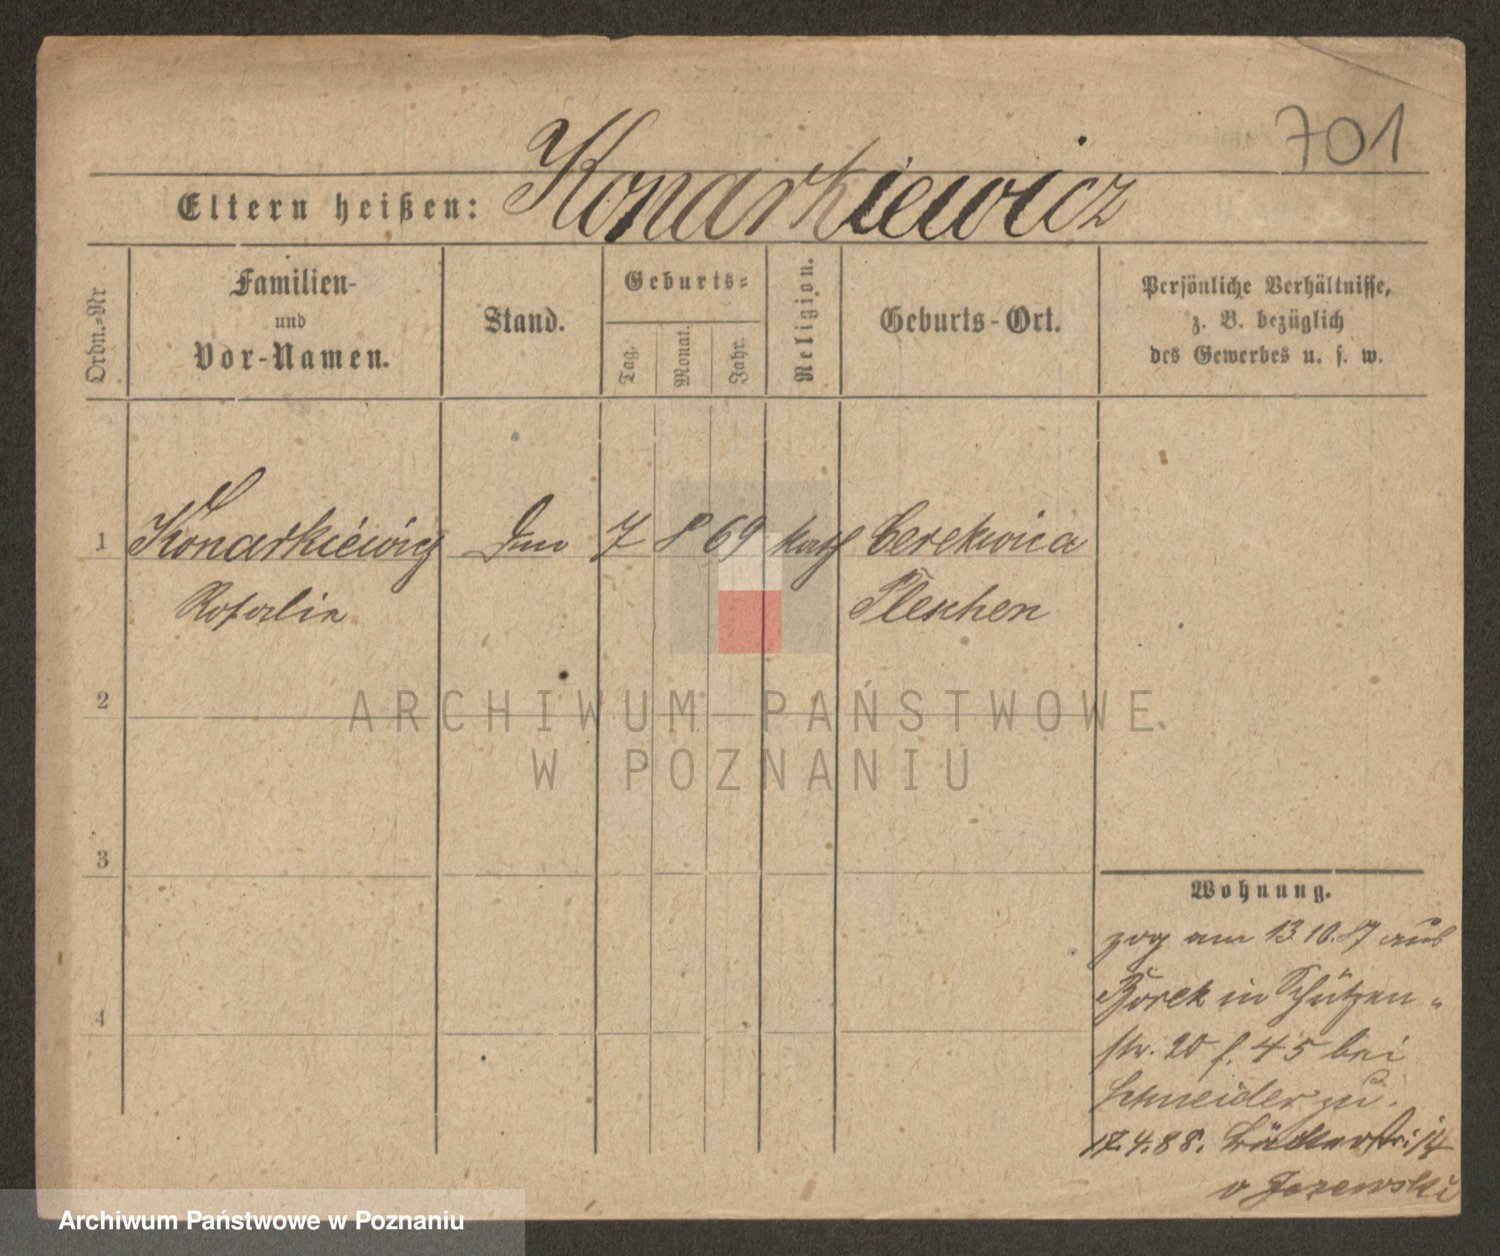 701
Konarkiewicz
Eltern heißen:
Ordn.-Nr
Familien-
und
Vor-Namen.
Stand.
Geburts-
Tag.
Monat.
Jahr.
Religion.
Geburts-Ort.
Persönliche Verhältnisse,
z. B. bezüglich
des Gewerbes u. s. w.
1 Konarkiewicz 7 8 69 kath Cerekwica
Rosalie Pleschen
2
ARCHIWUM PAŃSTWOWE
W POZNANIU
3
Wohnung.
zog am 13 10.87 aus
Borek in Schützen-
str. 20 f. 45 bei
Schneider zu.
4
17.4.88. 14
v Jezewski
Archiwum Państwowe w Poznaniu